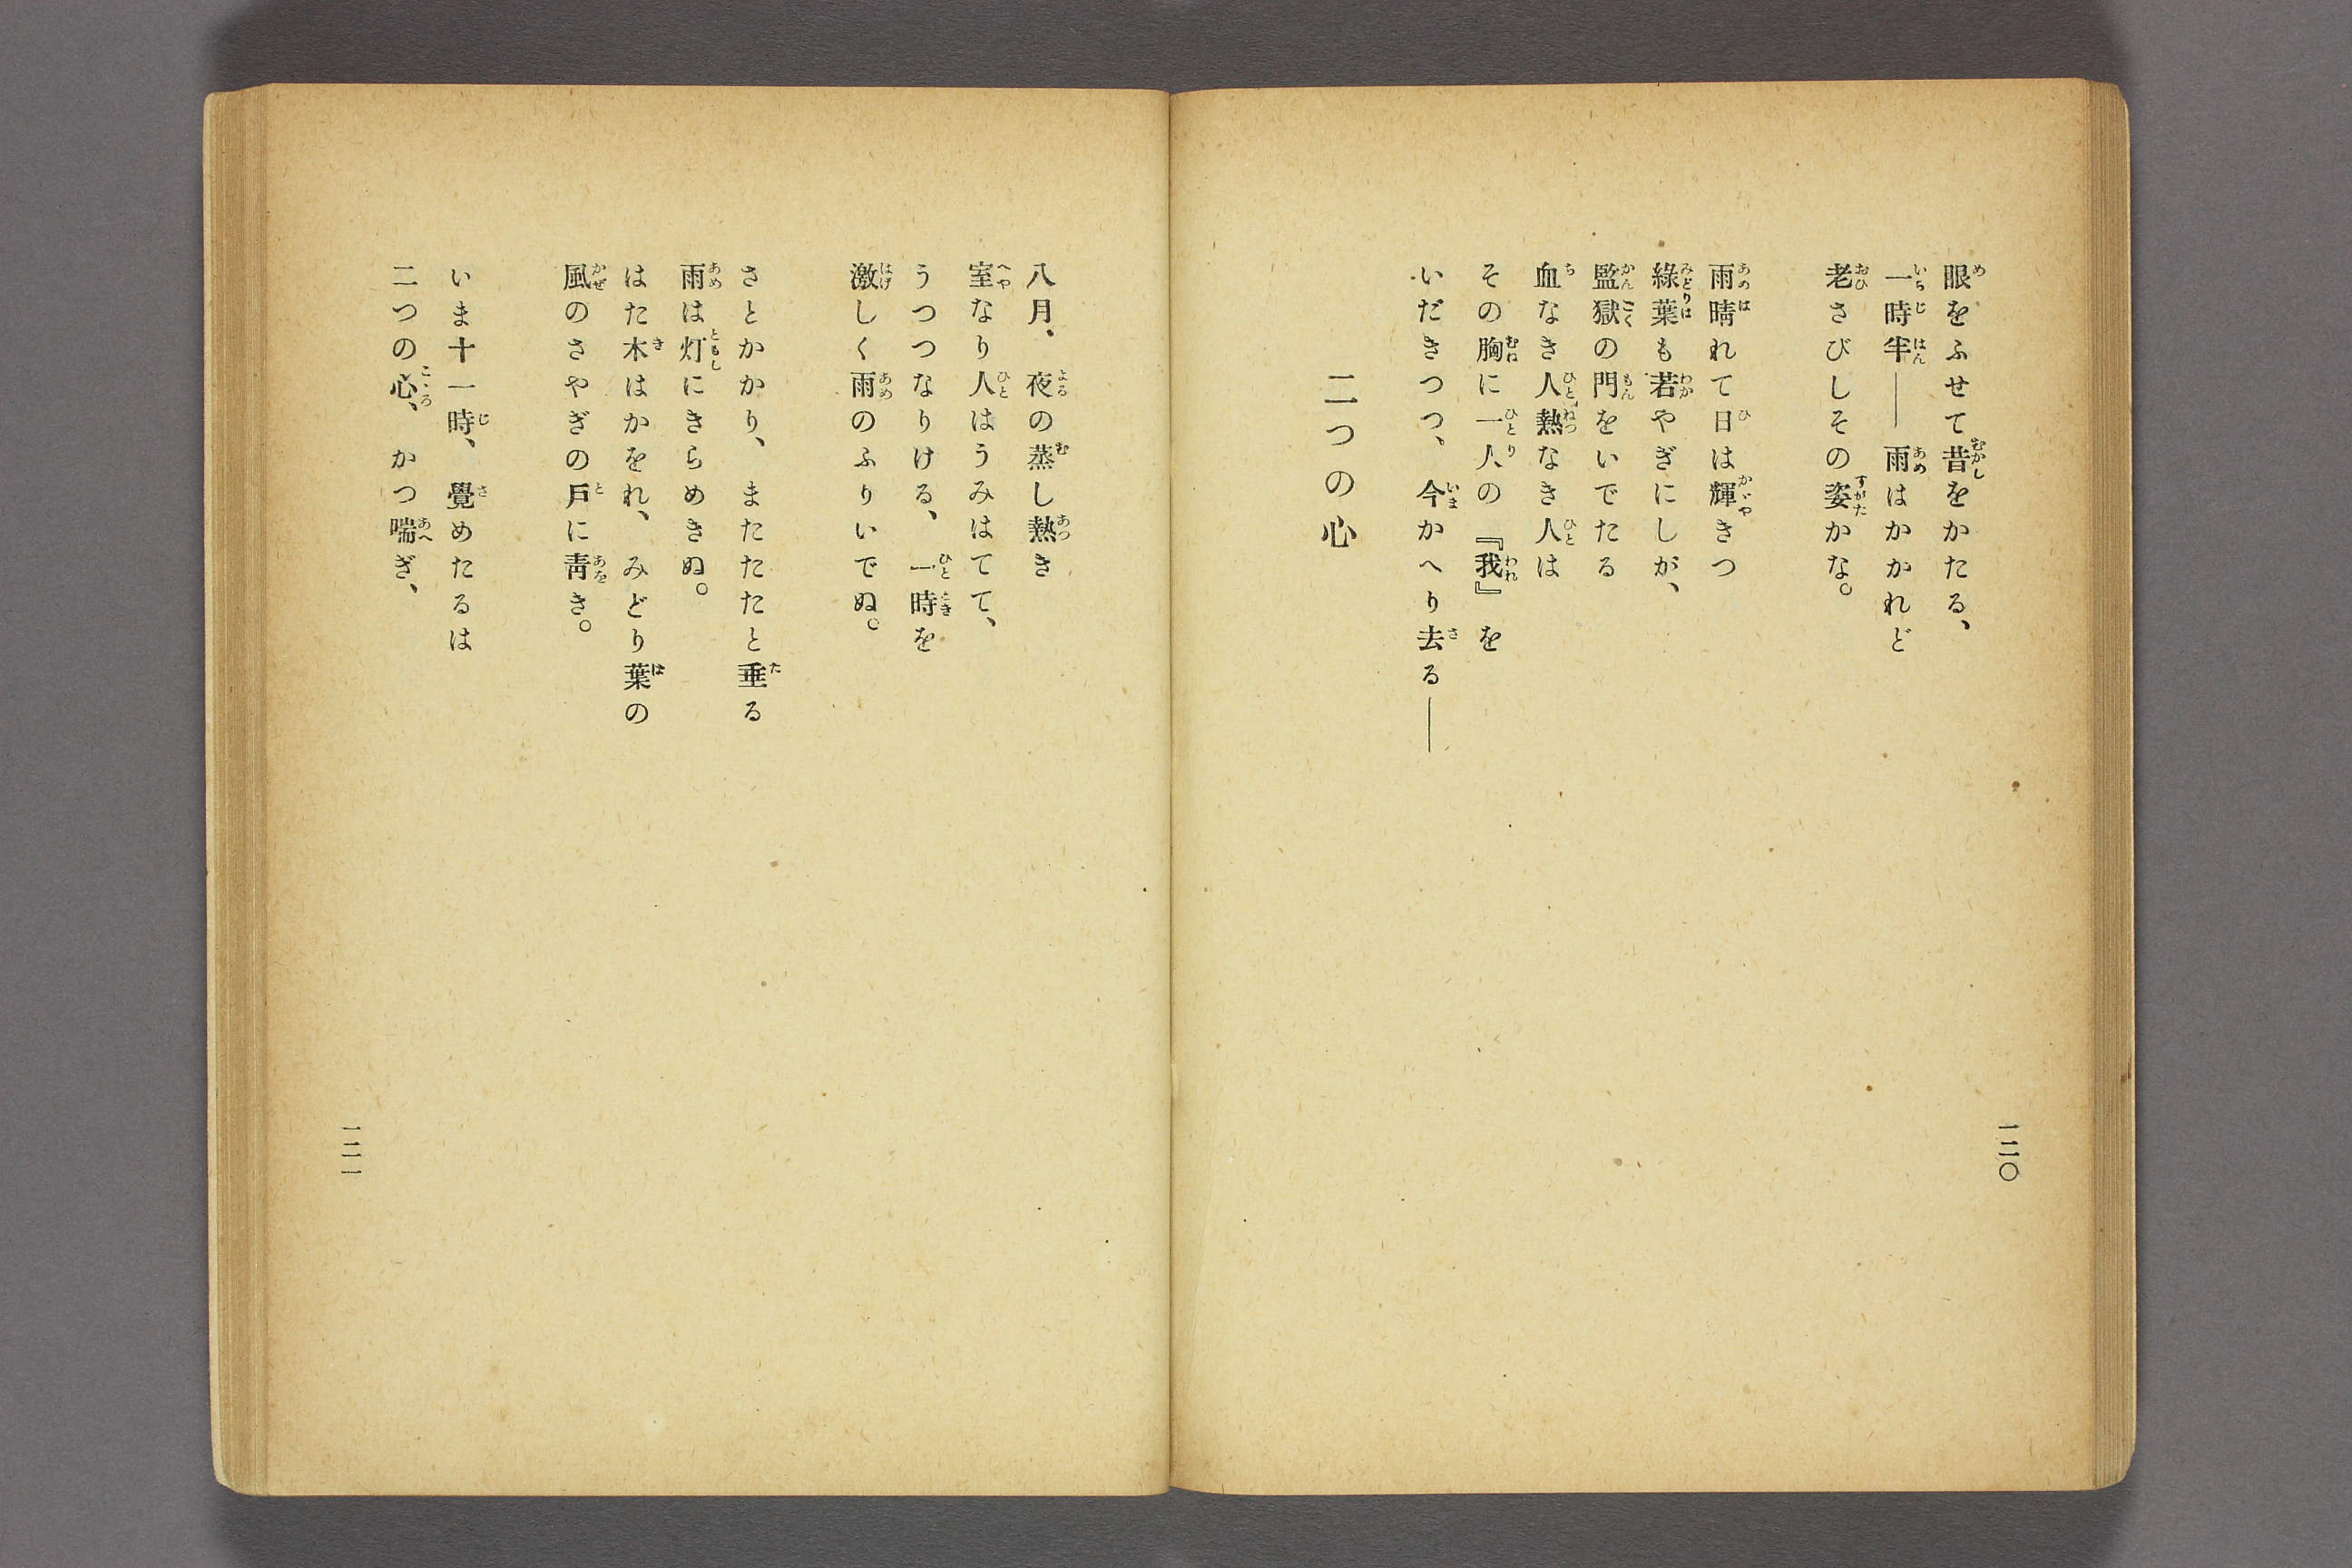 眼をふせて昔をかたる、
一時半――雨はかかれど
老さびしその姿かな。
雨晴れて日は輝きつ
綠葉も若やぎにしが、
監獄の門をいでたる
血なき人、熱なき人は
その胸に一人の『我』を
いだきつつ、今かへり去る――
二つの心
一二〇
八月、夜の蒸し熱き
室なり人はうみはてて、
うつつなりける、一時を
激しく雨のふりいでぬ。
さとかかり、またたたと垂る
雨は灯にきらめきぬ。
はた木はかをれ、みどり葉の
風のさやぎの戶に靑き。
いま十一時、覺めたるは
二つの心、かつ喘ぎ、
一二一